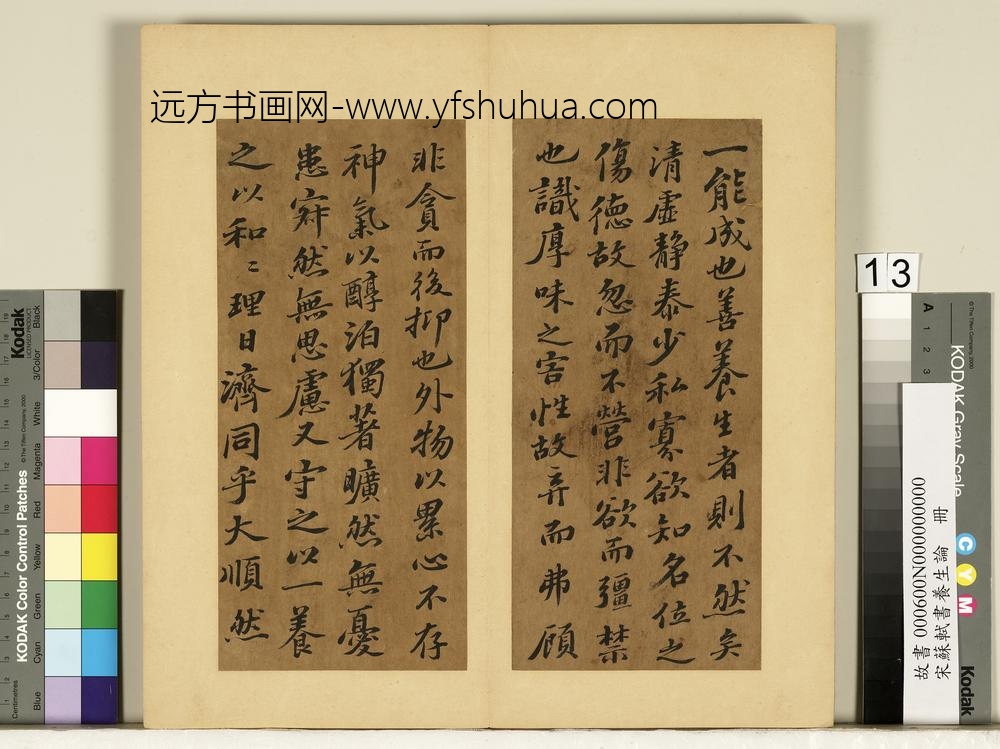 远方书画网-www.yfshuhua.com
一能成也善養生者則不然矣
清虛靜泰少私寡欲知名位之
傷德故忽而不營非欲而彊禁
也識厚味之害性故弃而弗顧
非貪而後抑也外物以累心不存
神氣以醇泊獨著曠然無憂
患寂然無思慮又守之以一養
之以和〻理日濟同乎大順然
13
Kodak
LICENSED PRODUCT
Black
3/Color
White
Magenta
Red
Yellow
Green
Cyan
Blue
KODAK Color Control Patches
© The Tiffen Company, 2000
Centimetres
KODAK Gray Scale
© The Tiffen Company, 2000
A 1 2 3
C
Y
M
Kodak
故書000600N000000000
宋蘇軾書養生論 冊